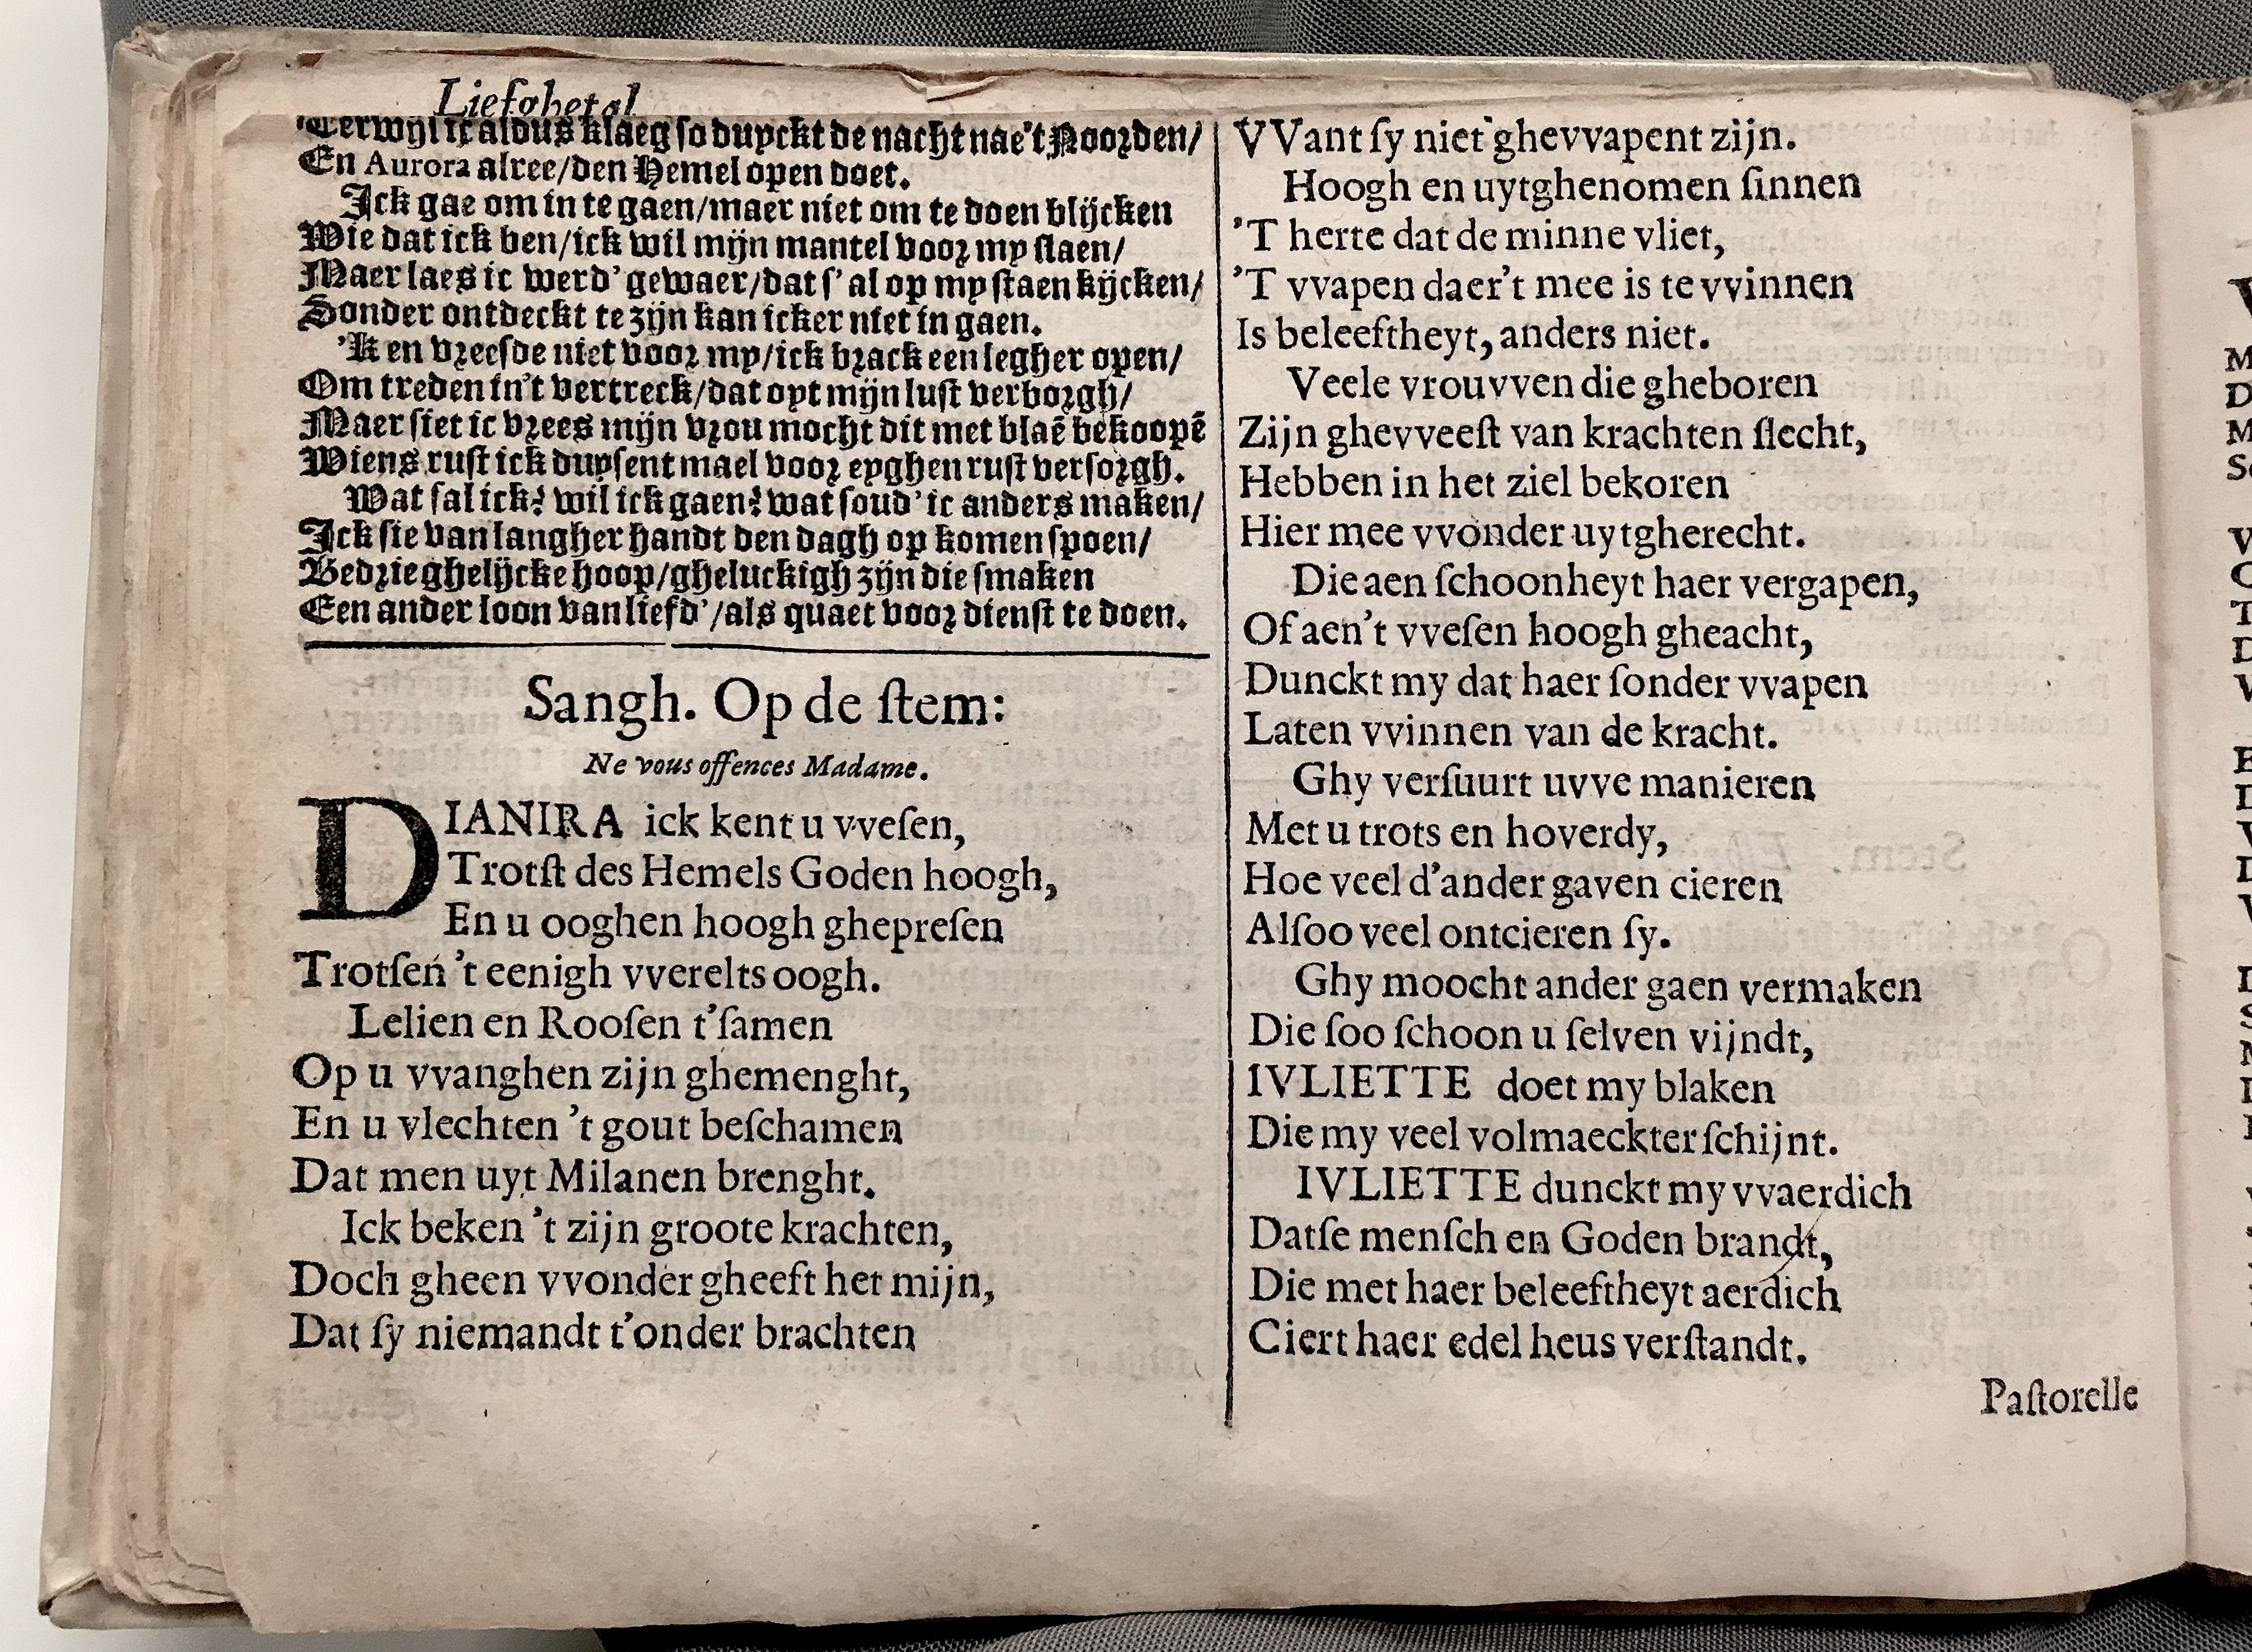 Liefghetal
Terwijl ic aldus klaeg so duyckt de nacht nae't Noorden/
En Aurora alree/den Hemel open doet.
Ick gae om in te gaen/maer niet om te doen blijcken
Wie dat ick ben/ick wil mijn mantel voor my slaen/
Maer laes ic werd' gewaer/dat s' al op my staen kijcken/
Sonder ontdeckt te zijn kan icker niet in gaen.
'K en vreesde niet voor my/ick brack een legher open/
Om treden in't vertreck/dat opt mijn lust verborgh/
Maer siet ic vrees mijn vrou mocht dit met blaē bekoopē
Wiens rust ick duysent mael voor eyghen rust versorgh.
Wat sal ick? wil ick gaen? wat soud' ic anders maken/
Ick sie van langher handt den dagh op komen spoen/
Bedrieghelijcke hoop/gheluckigh zijn die smaken
Een ander loon van liefd'/als quaet voor dienst te doen.
Sangh. Op de ſtem:
Ne vous offences Madame.
DIANIRA ick kent u vveſen,
Trotſt des Hemels Goden hoogh,
En u ooghen hoogh ghepreſen
Trotſen 't eenigh vverelts oogh.
Lelien en Rooſen t'ſamen
Op u vvanghen zijn ghemenght,
En u vlechten 't gout beſchamen
Dat men uyt Milanen brenght.
Ick beken 't zijn groote krachten,
Doch gheen vvonder gheeft het mijn,
Dat ſy niemandt t'onder brachten
VVant ſy niet ghevvapent zijn.
Hoogh en uytghenomen ſinnen
'T herte dat de minne vliet,
'T vvapen daer't mee is te vvinnen
Is beleeftheyt, anders niet.
Veele vrouvven die gheboren
Zijn ghevveeſt van krachten ſlecht,
Hebben in het ziel bekoren
Hier mee vvonder uytgherecht.
Die aen ſchoonheyt haer vergapen,
Of aen't vveſen hoogh gheacht,
Dunckt my dat haer ſonder vvapen
Laten vvinnen van de kracht.
Ghy verſuurt uvve manieren
Met u trots en hoverdy,
Hoe veel d'ander gaven cieren
Alſoo veel ontcieren ſy.
Ghy moocht ander gaen vermaken
Die ſoo ſchoon u ſelven vijndt,
IVLIETTE doet my blaken
Die my veel volmaeckter ſchijnt.
IVLIETTE dunckt my vvaerdich
Datſe menſch en Goden brandt,
Die met haer beleeftheyt aerdich
Ciert haer edel heus verſtandt.
Paſtorelle